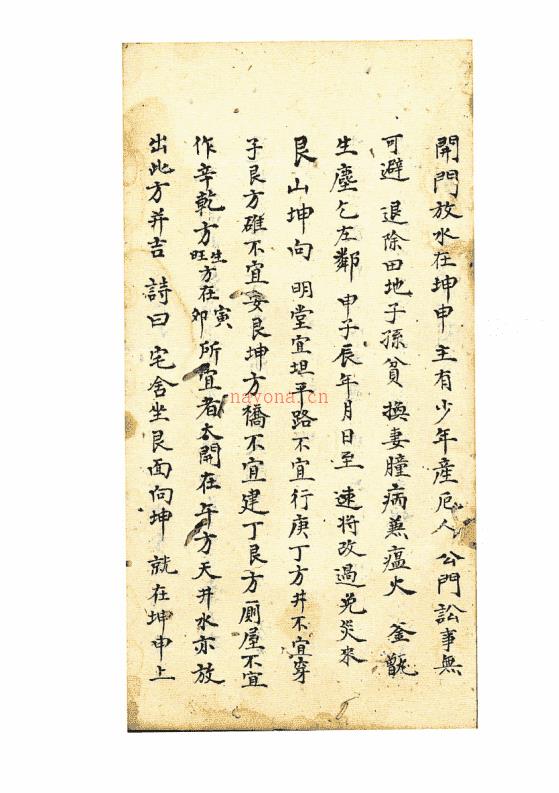 開門放水在坤申主有少年產厄人 公門訟事無
可避 退除田地子孫貧 換妻瞳病兼瘟火 釜甑
生塵乞左鄰 申子辰年月日至 速將改過免災來
艮山坤向 明堂宜坦平路不宜行庚丁方井不宜穿
子艮方碓不宜安艮坤方橋不宜建丁艮方厠屋不宜
作辛乾方生旺方在寅卯所宜者太開在午方天井水亦放
出此方并吉 詩曰 宅舍坐艮面向坤 就在坤申上
nayona.cn